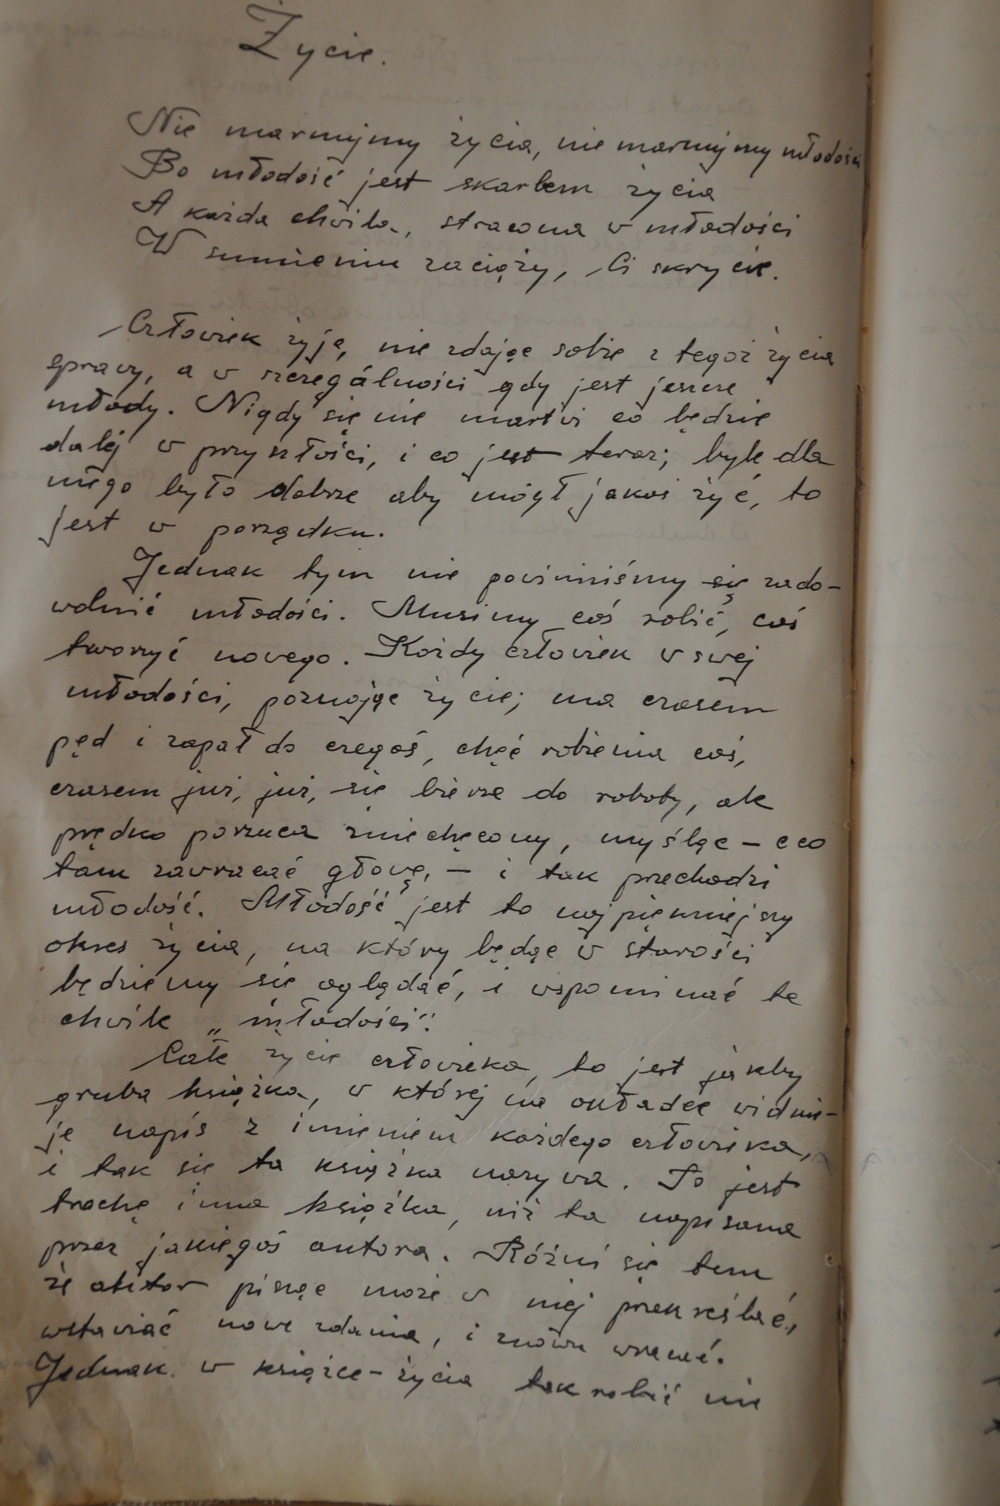 Życie.
Nie marnujmy życia, nie marnujmy młodości
Bo młodość jest skarbem życia
A każda chwila, stracona w młodości
W sumieniu zaciąży, Ci skrycie.
Człowiek żyją, nie zdając sobie z tegoż życia
sprawy, a w szczegálności gdy jest jeszcze
młody. Nigdy się nie martwi co będzie
dalej w przyszłości, i co jest teraz; byle dla
niego było dobrze aby mógł jakoś żyć, to
jest w porządku.
Jednak tym nie powinniśmy się zado-
wolnić młodości. Musimy coś robić, coś
tworzyć nowego. Każdy człowiek w swej
młodości, poznając życie; ma czasem
pęd i zapał do czegoś, chęć robienia coś,
czasem już, już, się bierze do roboty, ale
prędko porzuca zniechęcony, myśląc – e co
tam zawracać głowę, – i tak przechodzi
młodość. Młodość jest to najpiękniejszy
okres życia, na który będąc w starości
będziemy się oglądać, i wspominać te
chwile „młodości".
Całe życie człowieka, to jest jakby
gruba książka, w której na okładce widnie-
je napis z imieniem każdego człowieka,
i tak się ta książka nazywa. To jest
trochę inna książka, niż ta napisana
przez jakiegoś autora. Różni się tem
że autor pisząc może w niej przekreślać,
wstawiać nowe zdania, i znowu wracać.
Jednak w książce-życia tak robić nie